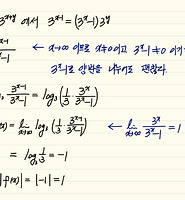 3^{x+y} 에서 3^{x-1} = (3^x-1)3^y
3^x-1 ← x→∞ 이므로 x≠0이고 3^x-1≠0 이기
3^x-1로 양변을 나누어도 괜찮다.
\frac{3^{x-1}}{3^x-1} = log_3(\frac{1}{3}·\frac{3^x}{3^x-1})
(x) = \lim_{x→∞} log_3(\frac{1}{3}·\frac{3^x}{3^x-1}) ← \lim_{x→∞} \frac{3^x}{3^x-1} = 1
= log_3 \frac{1}{3} = -1
f(x)| = |-1| = 1